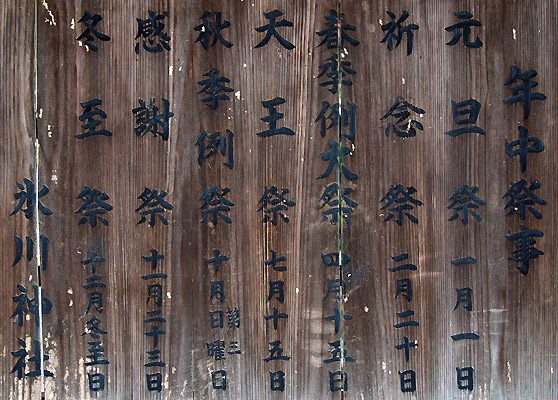 年中祭事
元旦祭 一月一日
祈念祭 二月二十日
春季例大祭 四月十五日
天王祭 七月十五日
秋季例祭 十月第三日曜日
感謝祭 十一月二十三日
冬至祭 十二月冬至日
氷川神社